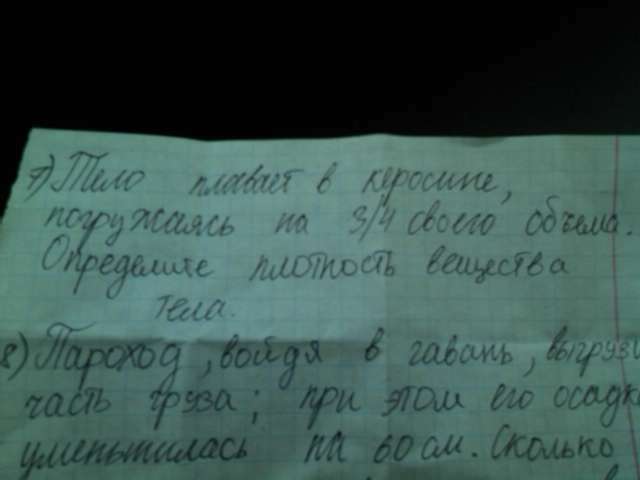 7) Тело плавает в керосине,
погружаясь на 3/4 своего объема.
Определите плотность вещества
тела.
8) Пароход, войдя в гавань, выгрузи
часть груза; при этом его осадка
уменьшилась на 60 см. Сколько